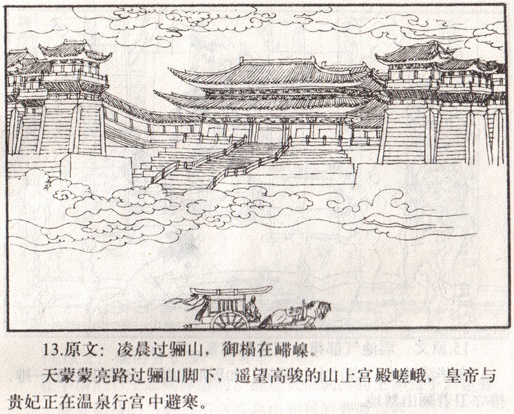 13.原文：凌晨过骊山，御榻在嵽嵲。
天蒙蒙亮路过骊山脚下，遥望高骏的山上宫殿嵯峨，皇帝与
贵妃正在温泉行宫中避寒。